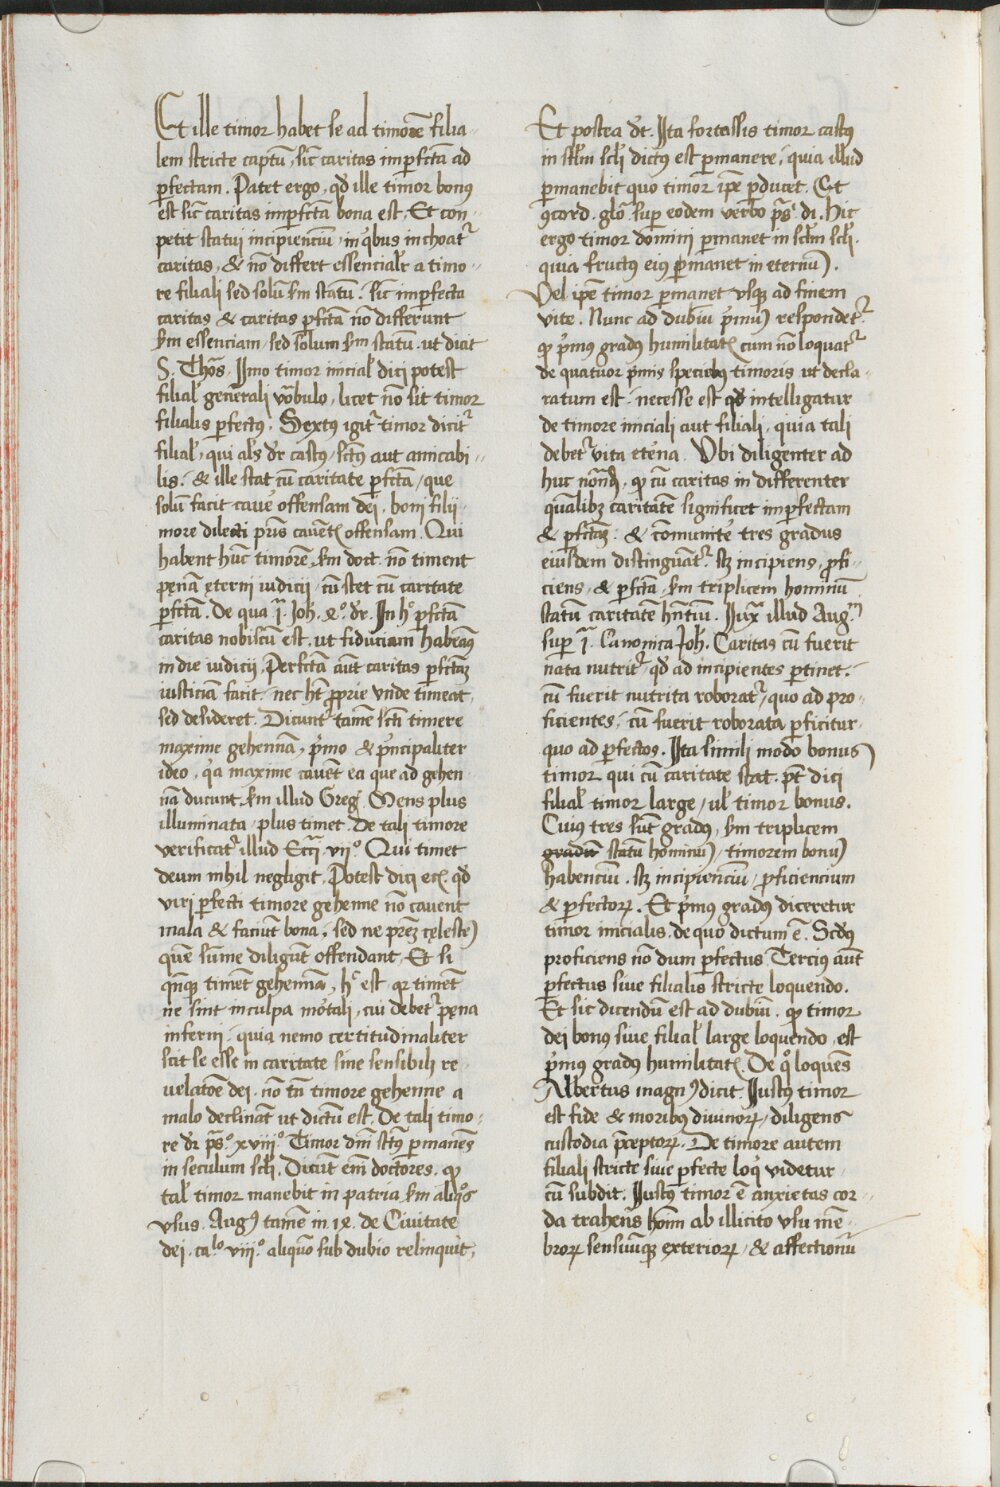 Et ille timor habet se ad timorē filia-
lem stricte captū, sic̄ caritas imp̄fctā ad
ꝑfectam. Patet ergo, qđ ille timor bonꝰ
est sic̄ caritas imꝑfctā bona est. Et con-
petit statui incipienciū, in q̇bus inchoatᷣ
caritas, & nō differt essencialr̄ a timo-
re filiali sed solū ẜm statū. sic̄ imperfecta
caritas & caritas ꝑfctā nō differunt
ẜm essenciam, sed solum ẜm statū. ut dicit
S. Thōs. Ijmo timor inicial' dici potest
filial' generali uōbulo, licet nō sit timor
filialis ꝑfectꝰ. Sextꝰ igit᷑ timor dicit᷑
filial', qui al's dr̄ castꝰ, sctꝰ aut amicabi-
lis. & ille stat cū caritate ꝑfctā, que
solū facit cauē offensam dei. boni filij
more dilecti pr̄is cauētꝭ offensam. Qui
habent hūc timorē, ẜm doct. nō timent
penā ęterni iudicij, cū stet cū caritate
ꝑfctā. De qua .j. Joh. 4.º dr̄. In hº ꝑfctā
caritas nobiscū est, ut fiduciam habeāꝰ
in die iudicij. Perfctā aūt caritas ꝑfctāꝫ
iusticiā facit, nec hꝫ ꝓprie unde timeat,
sed desideret. Dicunt᷑ tamē sctī timere
maxime gehennā, p̄mo & p̄ncipaliter
ideo, qͥa maxime cauēt ea que ad gehen
nā ducunt, ẜm illud Greg. Mens plus
illuminata, plus timet. De tali timore
verificat᷑ illud Eccī vij.º Qui timet
deum nihil negligit. Potest dici eciā qđ
viri ꝑfecti timore gehenne nō cauent
mala & faciūt bona, sed ne prēꝫ cęlestē
quē sūme diligūt offendant. Et si
qn̄qꝫ timēt gehennā, hº est qꝛ timēt
ne sint in culpa mōtali, cui debet᷑ pęna
inferni, quia nemo certitudinaliter
scit se esse in caritate sine sensibili re
uelatōe dei. nō tn̄ timore gehenne a
malo declināt ut dictū est. De tali timo-
re dr̄ p̄s.º xviij.º Timor dn̄i sctꝰ ꝑmanēs
in seculum scl̄i. Dicūt em̄ doctores, qꝫ
tal' timor manebit in patria ẜm aliqͦs
vsus. Augꝰ tamē in 14. de Ciuitate
dei. ca.lo viij.º aliquō sub dubio relinquit,
Et postea dt. Ijta fortassis timor castꝰ
in scl̄m scl̄i dictꝰ est ꝑmanere, quia illud
ꝑmanebit quo timor ip̄e ꝑducet. Et
ꝯcord. glō. suꝑ eodem uerbo p̄s.º di. Hic
ergo timor domini ꝑmanet in scl̄m scl̄i.
quia fructꝰ eiꝰ ꝑmanet in eternū.
Vel ip̄e timor ꝑmanet vsqꝫ ad finem
vite. Nunc ad dubiū p̄mū respondet᷑
qꝫ p̄mꝰ gradꝰ humilitatꝭ cum nō loquat᷑
de quatuor p̄mis speciebꝰ timoris ut decla-
ratum est, necesse est qđ intelligatur
de timore iniciali aut filiali, quia tali
debet᷑ vita etēna. Vbi diligenter ad
huc notāndū, qꝫ cū caritas in differenter
quālibꝫ caritatē significet imꝑfectam
& ꝑfctāꝫ, & cōmunitē tres gradus
eiusdem distinguāt᷑. sꝫ incipiens, ꝓfi-
ciens, & ꝑfctā, ẜm triplicem hominū
statū caritatē hn̄tiū. Iux̄ illud Aug.ꝰ
suꝑ .j. Canonica Joh. Caritas cū fuerit
nata nutrit᷑, qđ ad incipientes ꝑtinet.
cū fuerit nutrita roborat᷑, quo ad pro-
ficientes, cū fuerit roborata ꝑficitur
quo ad ꝑfectos. Ijta simili modo bonus
timor qui cū caritate stat, pōt dici
filial' timor large, ul' timor bonus.
Cuiꝰ tres sūt gradꝰ, ẜm triplicem
gradū statū hominū, timorem bonū
habenciū. sꝫ incipienciū, ꝓficiencium
& ꝑfectoꝝ. Et p̄mꝰ gradꝰ diceretur
timor inicialis, de quo dictum ē. Scdꝰ
proficiens nō dum ꝑfectus. Tercius aūt
ꝑfectus siue filialis stricte loquendo.
Et sic dicendū est ad dubiū. qꝫ timor
dei bonꝰ siue filial' large loquendo, est
p̄mꝰ gradꝰ humilitatꝭ. De qͦ loquēs
Albertus magnꝰ dicit. Iustꝰ timor
est fide & moribꝰ diuinoꝝ, diligens
custodia p̄ceptoꝝ. De timore autem
filiali stricte siue ꝑfecte loqͥ videtur
cū subdit. Iustꝰ timor ē anxietas cor-
da trahens hōim ab illicito vsu mē-
broꝝ sensuūqꝫ exterioꝝ, & affectionū